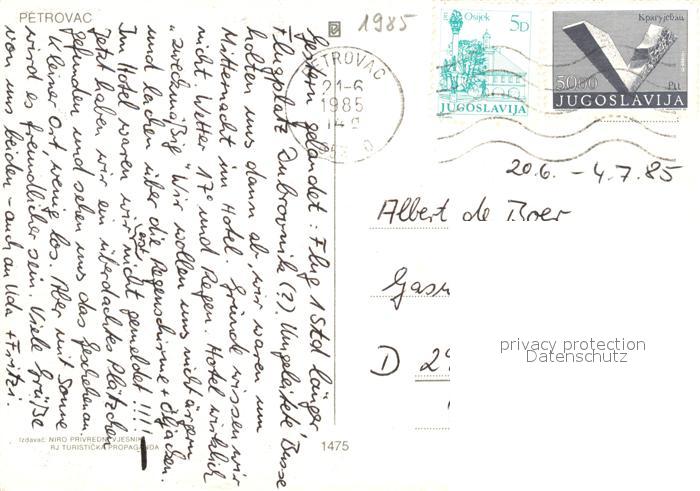 PETROVAC
1985
Osijek
5D
JUGOSLAVIJA
Крагујевац
50.00
JUGOSLAVIJA
PETROVAC
21-6
1985
20.6. - 4.7.85
Gestern gelandet: Flug 1 Std länger,
Flugplatz Dubrovnik (?). Umgeleitet, Busse
holten uns dann ab wir waren um
Mitternacht im Hotel. Gründe wissen wir
nicht. Wetter 17° und Regen. Hotel wirklich
"zweckmäßig". Wir wollen uns nicht ärgern
und lachen über die Regenschirme + Öljacken.
Im Hotel waren wir erst nicht gemeldet!!!!
Jetzt haben wir ein überdachtes Plätzchen
gefunden und sehen uns das Geschehen an.
Kleiner Ort, wenig los. Aber mit Sonne
wird es freundlicher sein. Viele Grüße
von uns beiden - auch an Uda + Fritzi.
Albert de Boer
D 2
privacy protection
Datenschutz
Izdavač: NIRO PRIVREDNI VJESNIK
RJ TURISTIČKA PROPAGANDA
1475